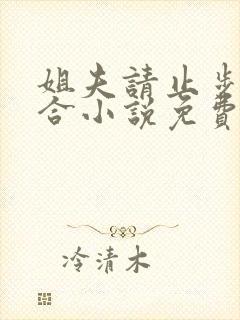 姐夫請止步
合小説免費
冷清木